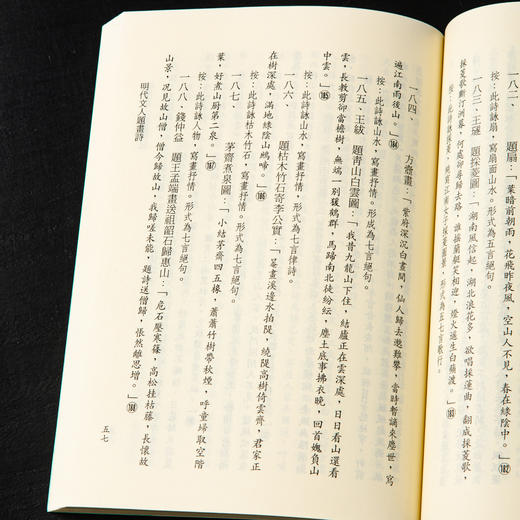 題扇：「葉暗前朝雨，花飛昨夜風，空山人不見，春在綠陰中。」(182)
按：此詩詠扇，寫扇面山水。形式為五言絕句。
一八三、王璲　題採菱圖：「湖南風信起，湖北浪花多，欲唱採蓮曲，翻成採菱歌，
採菱歌斷汀洲暮，何處卻尋歸去路，誰搖蘭艇笑相迎，燈火遙生白蘋渡。」(183)
按：此詩詠採菱，純寫江南女子採菱圖景，形式為五七言歌行。
一八四、　方壺畫：「紫府深沉白晝閒，仙人歸去邈難攀，當時暫謫來塵世，寫
遍江南雨後山。」(184)
按：此詩詠山水，寫畫抒情。形成為七言絕句。
一八五、王紱　題青山白雲圖：「我昔九龍山下住，結廬正在雲深處，日日看山還看
雲，長教剪卻當檐樹，無端一別猿鶴群，馬蹄南北徒紛紜，塵土底事拂衣晚，回首媿負山
中雲。」(185)
按：此詩詠山水，寫畫抒情，形式為七言律詩。
一八六、　題枯木竹石寄李公實：「罨畫溪邊水拍隄，繞隄高樹倚雲齊，君家正
在樹深處，滿地綠陰山鳥啼。」(186)
按：此詩詠枯木竹石，寫畫抒情。形式為七言絕句。
一八七、　茅齋煮泉圖：「小結茅齋四五椽，蕭蕭竹樹帶秋煙，呼童掃取空階
葉，好煮山厨第二泉。」(187)
按：此詩詠人物，寫畫抒情。形式為七言絕句。
一八八、錢仲益　題王孟端畫送祖韶石歸惠山：「危石壓寒藤，高松挂枯藤，長懷故
山景，況見故山僧，僧今歸故山，我歸嗟未能，題詩送僧歸，悵然離思增。」(188)
明代文人題畫詩
五七